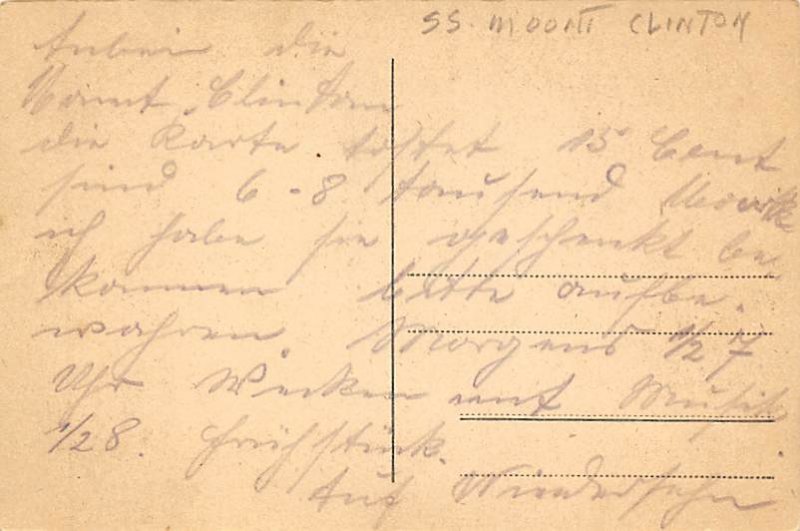 SS. MOONT CLINTON
Anbei die
Mount Clinton
die Karte kostet 15 Cent
sind 6-8 tausend Mark
ich habe sie geschenkt be-
kommen bitte aufbe-
wahren. Morgens 1/2 7
Uhr Wecken mit Musik
1/2 8. Frühstück.
Auf Wiedersehn